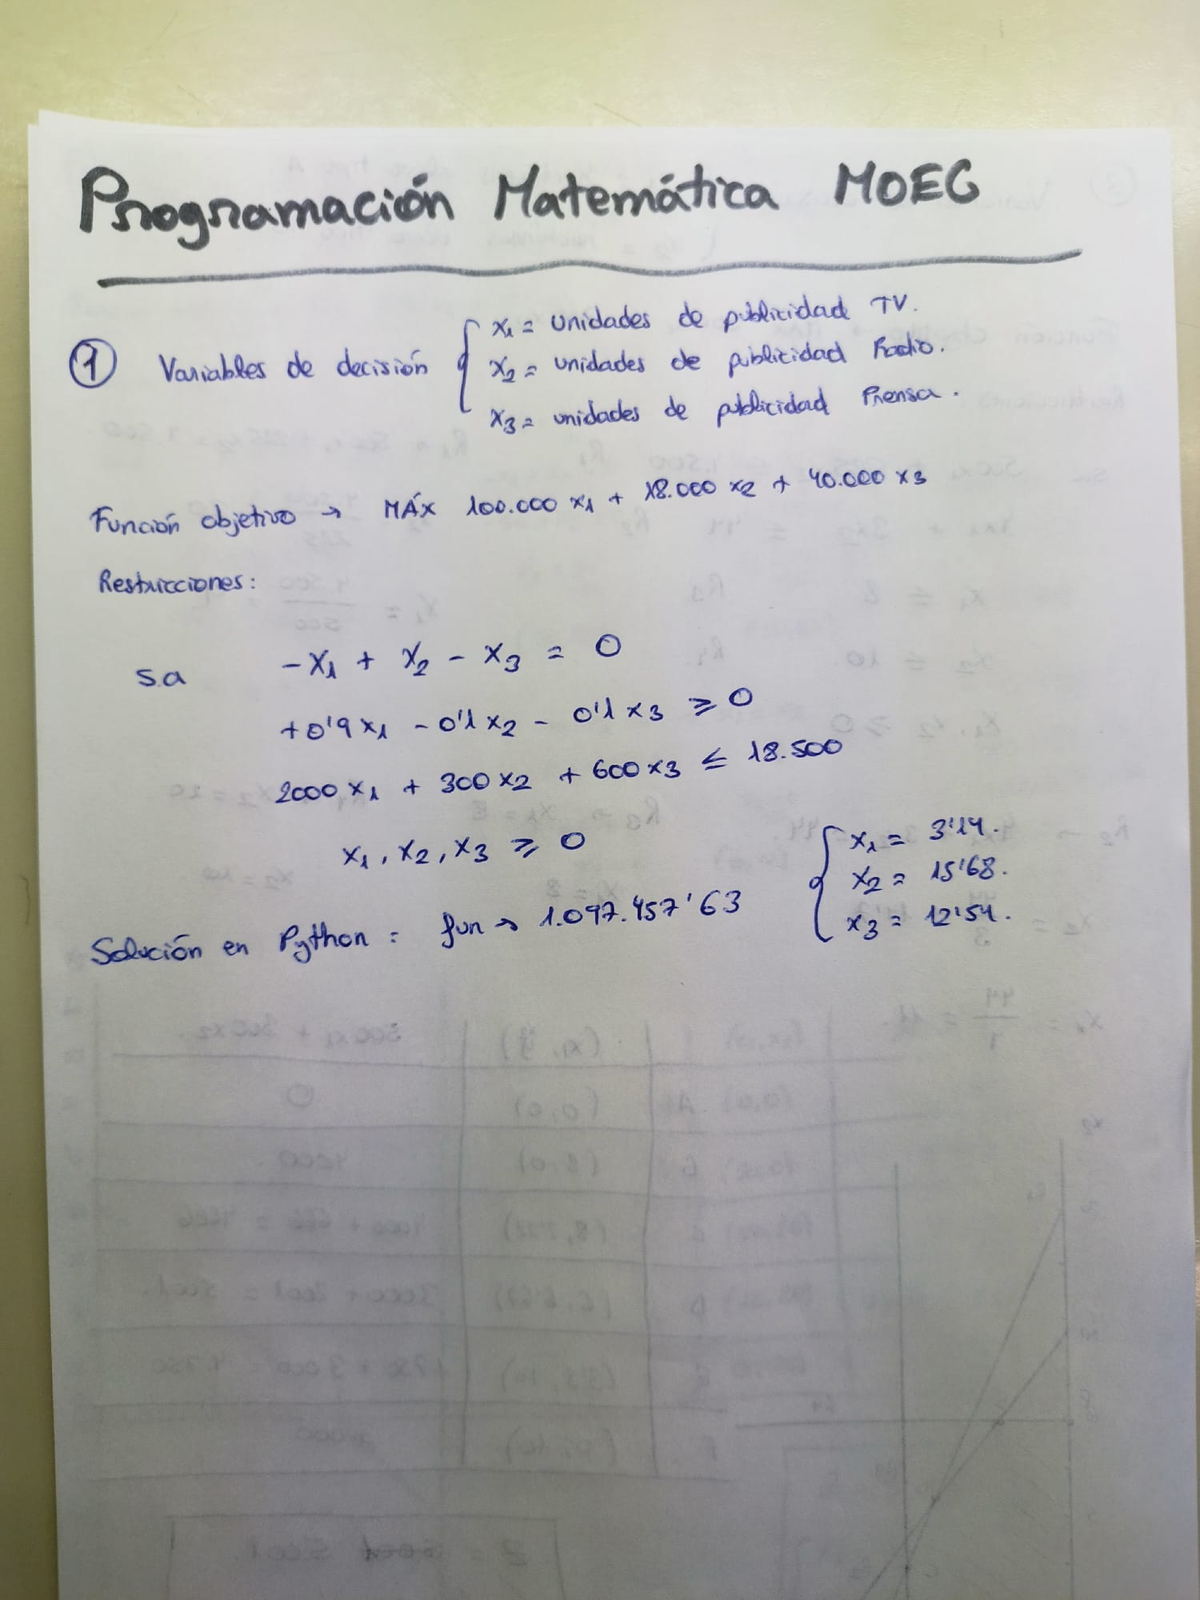 Programación Matemática MOEC
① Variables de decisión { x1 = unidades de publicidad TV.
x2 = unidades de publicidad Radio.
x3 = unidades de publicidad Prensa.
Función objetivo → MÁX 100.000 x1 + 18.000 x2 + 40.000 x3
Restricciones:
s.a -x1 + x2 - x3 = 0
+0'9 x1 - 0'1 x2 - 0'1 x3 ≥ 0
2000 x1 + 300 x2 + 600 x3 ≤ 18.500
x1, x2, x3 ≥ 0
Solución en Python = fun → 1.097.457'63 { x1 = 3'14.
x2 = 15'68.
x3 = 12'54.